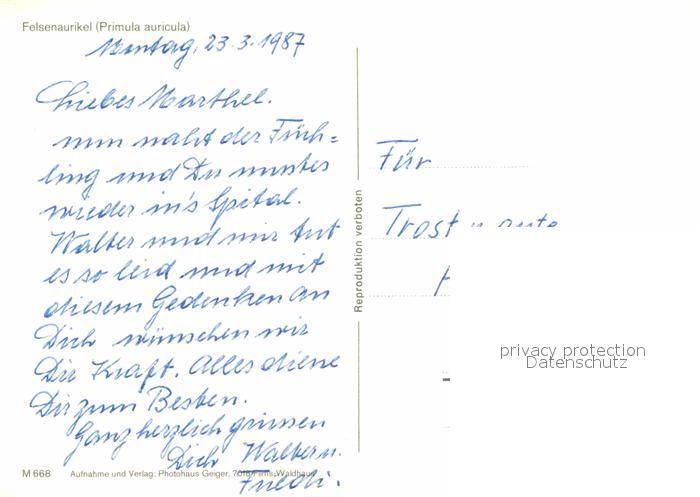 Felsenaurikel (Primula auricula)
Montag, 23.3.1987
Liebes Marthel.
nun naht der Früh=
ling und Du musstes
wieder in's Spital.
Walter und mir tut
es so leid und mit
diesem Gedenken an
Dich wünschen wir
Dir Kraft. Alles diene
Dir zum Besten.
Ganz herzlich grüssen
Dich Walter u.
Friedi.
M 668 Aufnahme und Verlag: Photohaus Geiger, Flims-Waldhaus
Reproduktion verboten
Für
Trost u. gute
privacy protection
Datenschutz